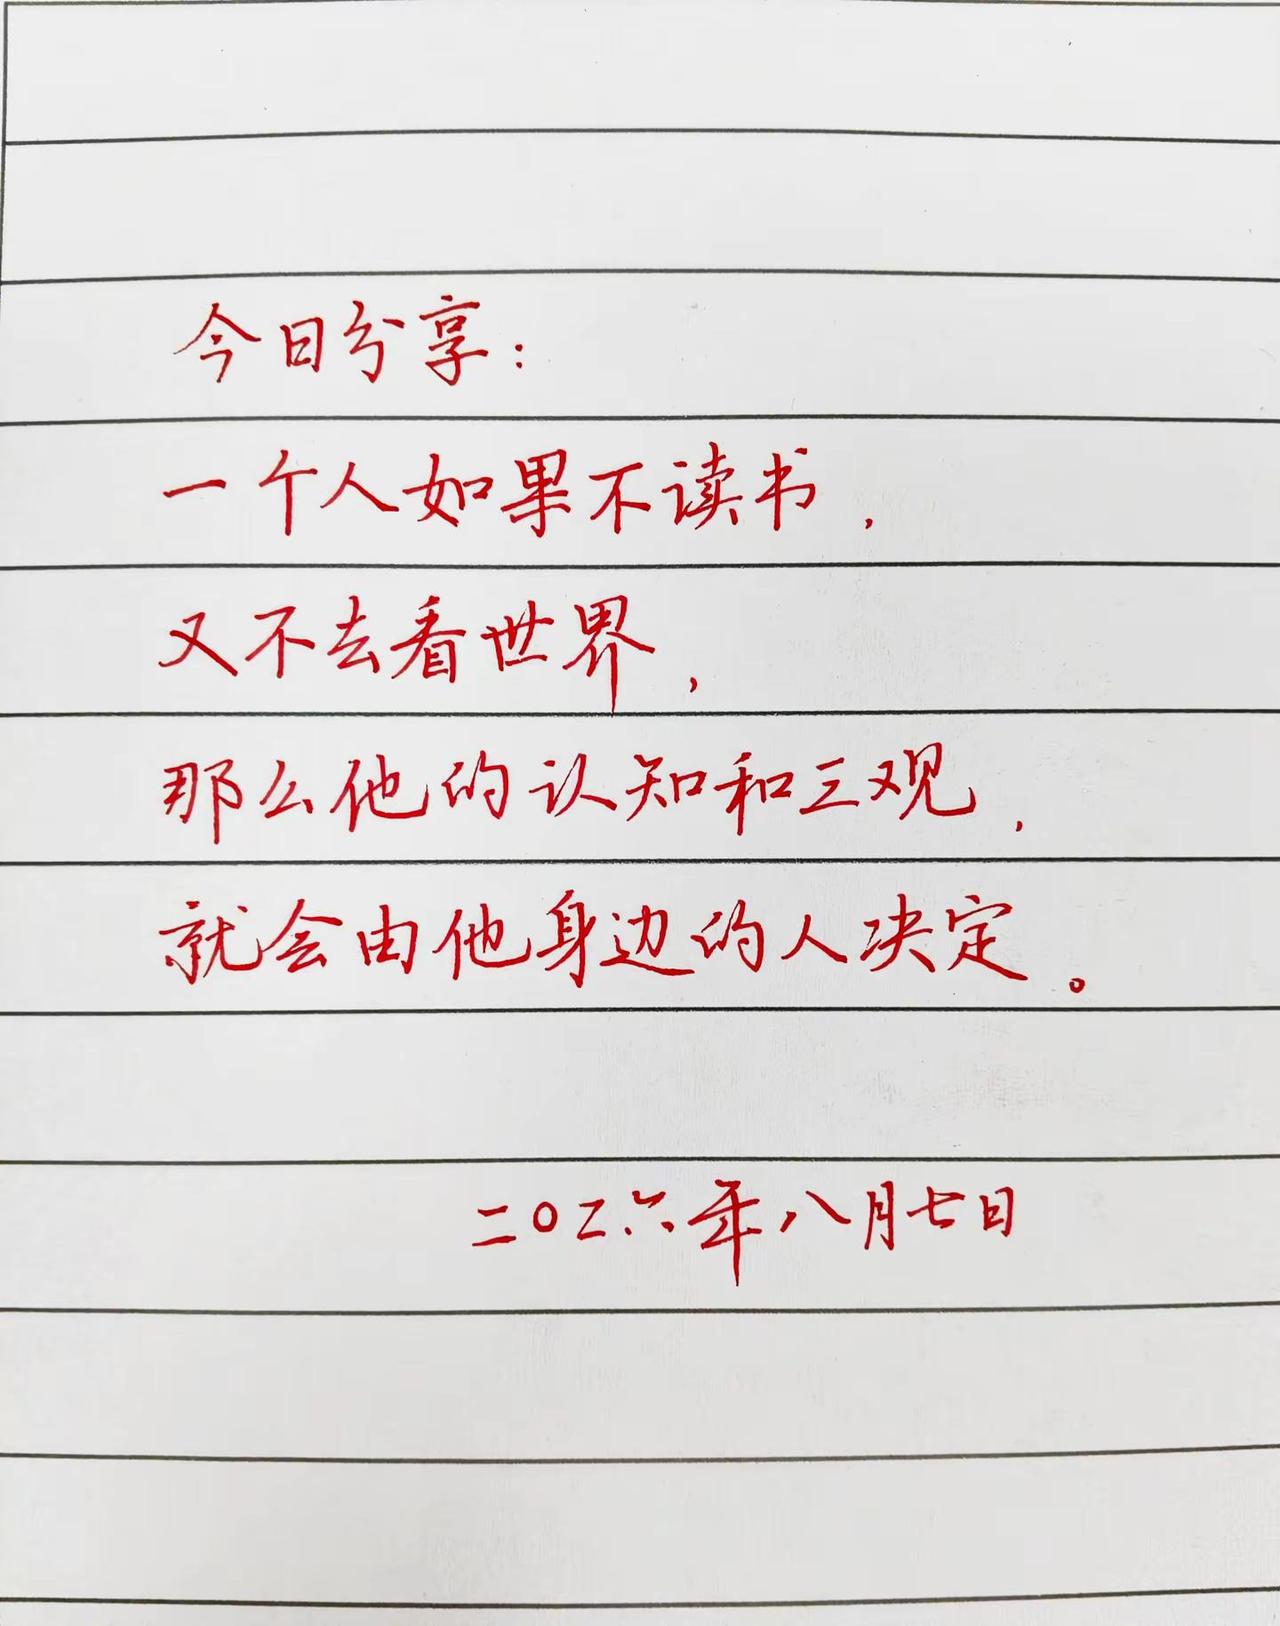 今日分享：
一个人如果不读书，
又不去看世界，
那么他的认知和三观，
就会由他身边的人决定。
二〇二六年八月七日